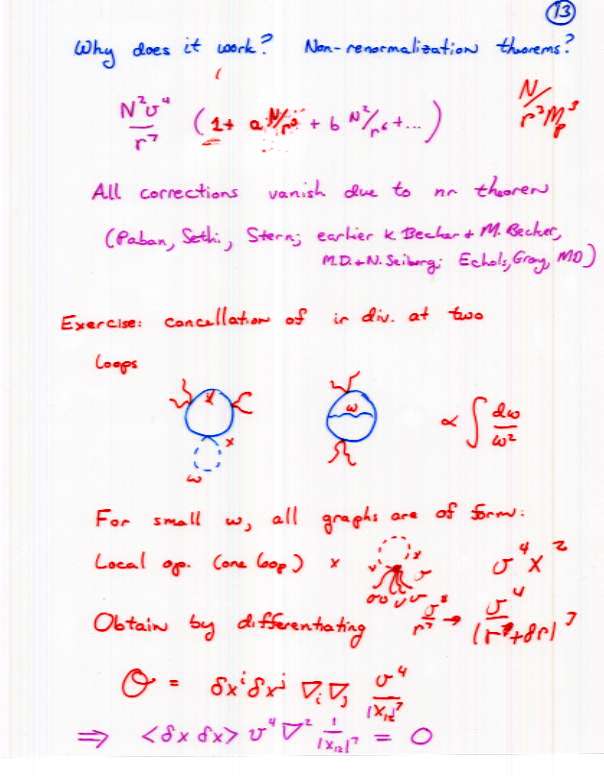 13
Why does it work? Non-renormalization theorems?
N²v⁴/r⁷ (1 + a N/r³ + b N²/r⁶ + ...) N/r³M_p³
All corrections vanish due to nr theorem
(Paban, Sethi, Stern; earlier K Becker + M. Becker,
M.D. + N. Seiberg; Echols, Gray, MD)
Exercise: cancellation of ir div. at two
loops
x x ω ω ∝ ∫ dω/ω²
For small ω, all graphs are of form:
Local op. (one loop) x x x v v v v v⁴ x²
Obtain by differentiating v⁴/r⁷ → v⁴/|r+δr|⁷
O = δxⁱδxʲ ∇ᵢ∇ⱼ v⁴/|x₁₂|⁷
⇒ <δx δx> v⁴ ∇² 1/|x₁₂|⁷ = 0